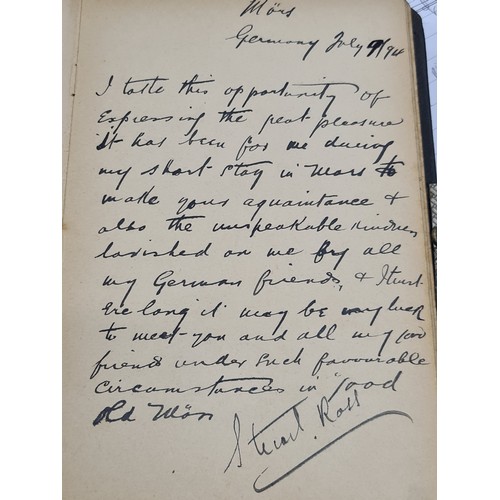 Mörs
Germany July 9/94
I take this opportunity of
Expressing the great pleasure
it has been for me during
my short stay in Mörs to
make your aquaintance &
also the unspeakable kindness
lavished on me by all
my German friends, & I trust
Ere long it may be my luck
to meet you and all my good
friends under such favourable
Circumstances in "Good
Old Mörs
Stuart Ross